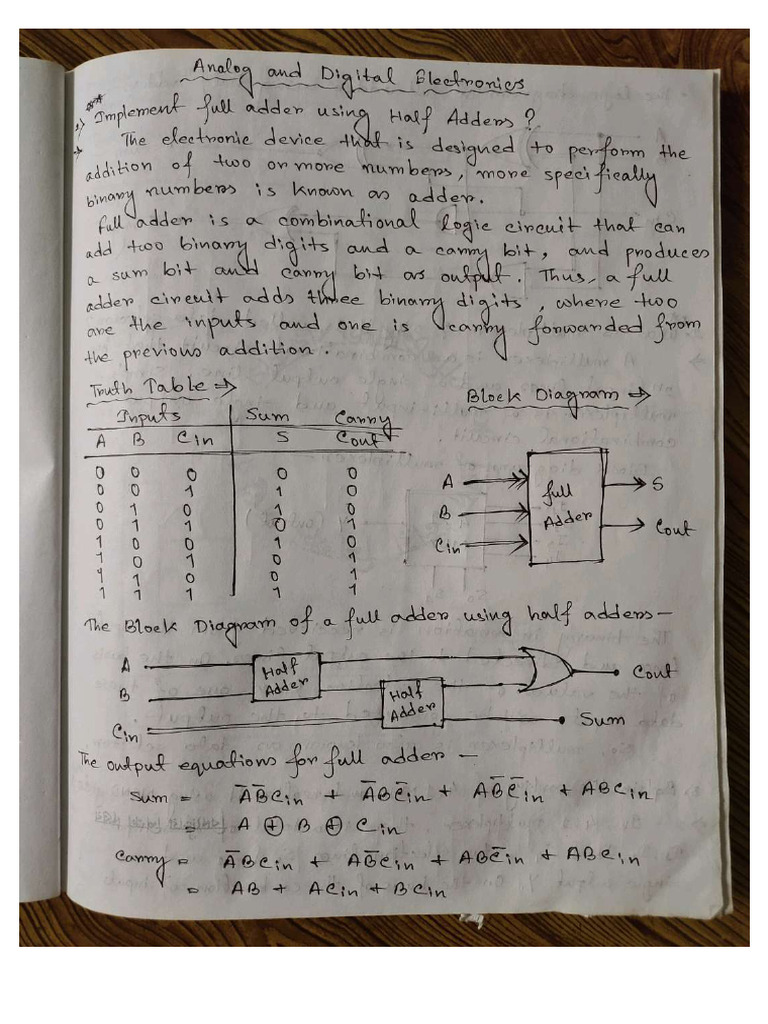 Analog and Digital Electronics
** 1) Implement full adder using Half Adders?
→ The electronic device that is designed to perform the
addition of two or more numbers, more specifically
binary numbers is known as adder.
full adder is a combinational logic circuit that can
add two binary digits and a carry bit, and produces
a sum bit and carry bit as output. Thus, a full
adder circuit adds three binary digits, where two
are the inputs and one is carry forwarded from
the previous addition.
Truth Table ⇒
Inputs Sum Carry
A B Cin S Cout
0 0 0 0 0
0 0 1 1 0
0 1 0 1 0
0 1 1 0 1
1 0 0 1 0
1 0 1 0 1
1 1 0 0 1
1 1 1 1 1
Block Diagram →
A
B
Cin
full
Adder
S
Cout
The Block Diagram of a full adder using half adders —
A
B
Cin
Half
Adder
Half
Adder
Cout
Sum
The output equations for full adder —
Sum = A̅B̅Cin + A̅BC̅in + AB̅C̅in + ABCin
= A ⊕ B ⊕ Cin
Carry = A̅BCin + AB̅Cin + ABC̅in + ABCin
= AB + ACin + BCin